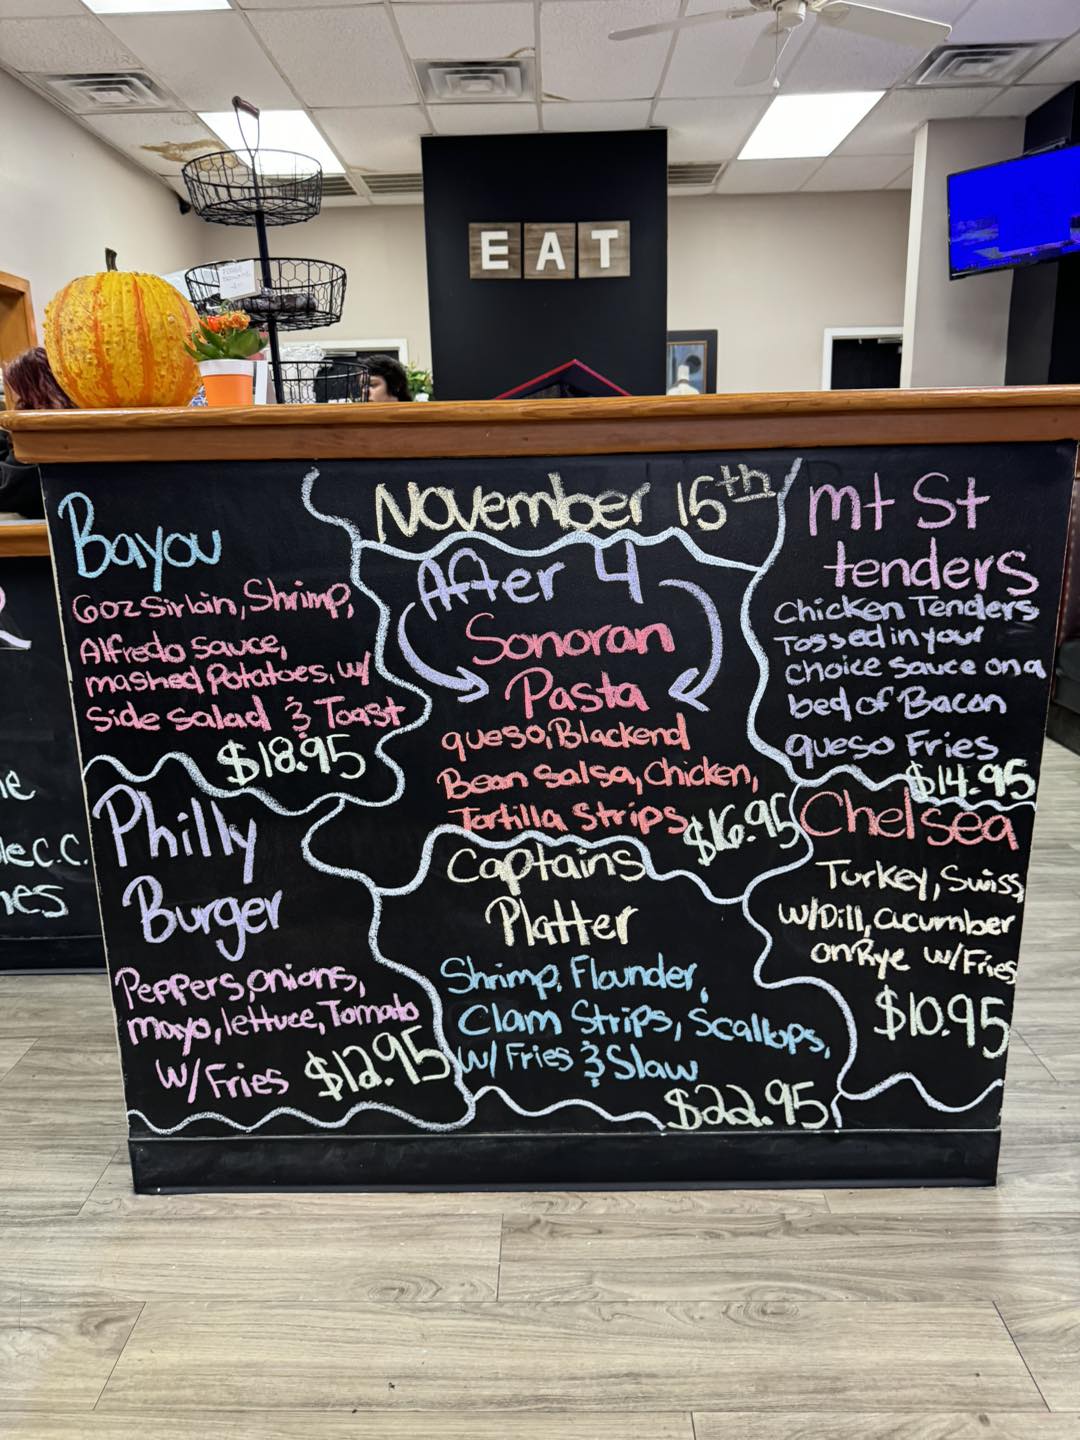 EAT
November 15th
Bayou
6oz Sirloin, Shrimp,
Alfredo Sauce,
mashed Potatoes, w/
Side Salad & Toast
$18.95
Philly
Burger
Peppers, onions,
mayo, lettuce, Tomato
w/Fries $12.95
After 4
Sonoran
Pasta
queso, Blackend
Bean Salsa, Chicken,
Tortilla Strips
$16.95
Captains
Platter
Shrimp, Flounder,
Clam Strips, Scallops,
w/Fries & Slaw
$22.95
mt St
tenders
Chicken Tenders
Tossed in your
choice Sauce on a
bed of Bacon
queso Fries
$14.95
Chelsea
Turkey, Swiss,
w/Dill, Cucumber
on Rye w/Fries
$10.95
C.C.